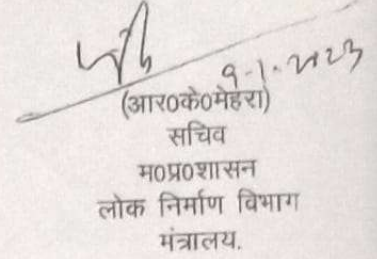 9-1-2023
(आर0के0मेहरा)
सचिव
म0प्र0शासन
लोक निर्माण विभाग
मंत्रालय.